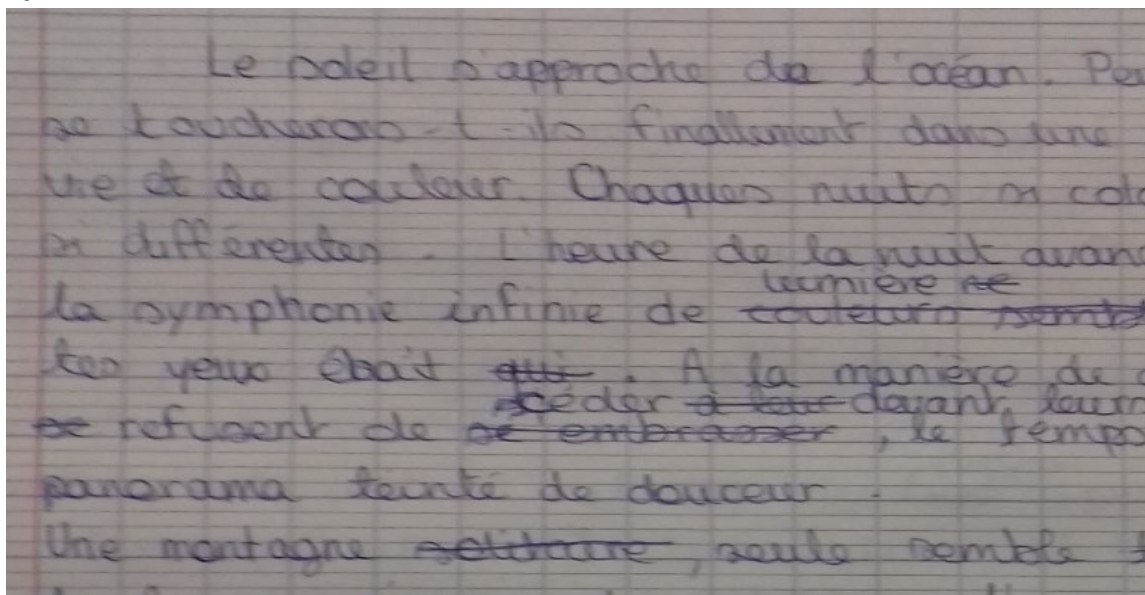 Le soleil s'approche de l'océan. Pe
se toucherons-t-ils finallement dans une
vie et de couleur. Chaques nuits on
on différentes. L'heure de la nuit avan
lumière se
la symphonie infinie de couleurs
tes yeux était qui. A la manière de
céder à leur devant leur
se refusent de se embrasser, le temps
panorama teinté de douceur.
Une montagne solitaire, seule semble